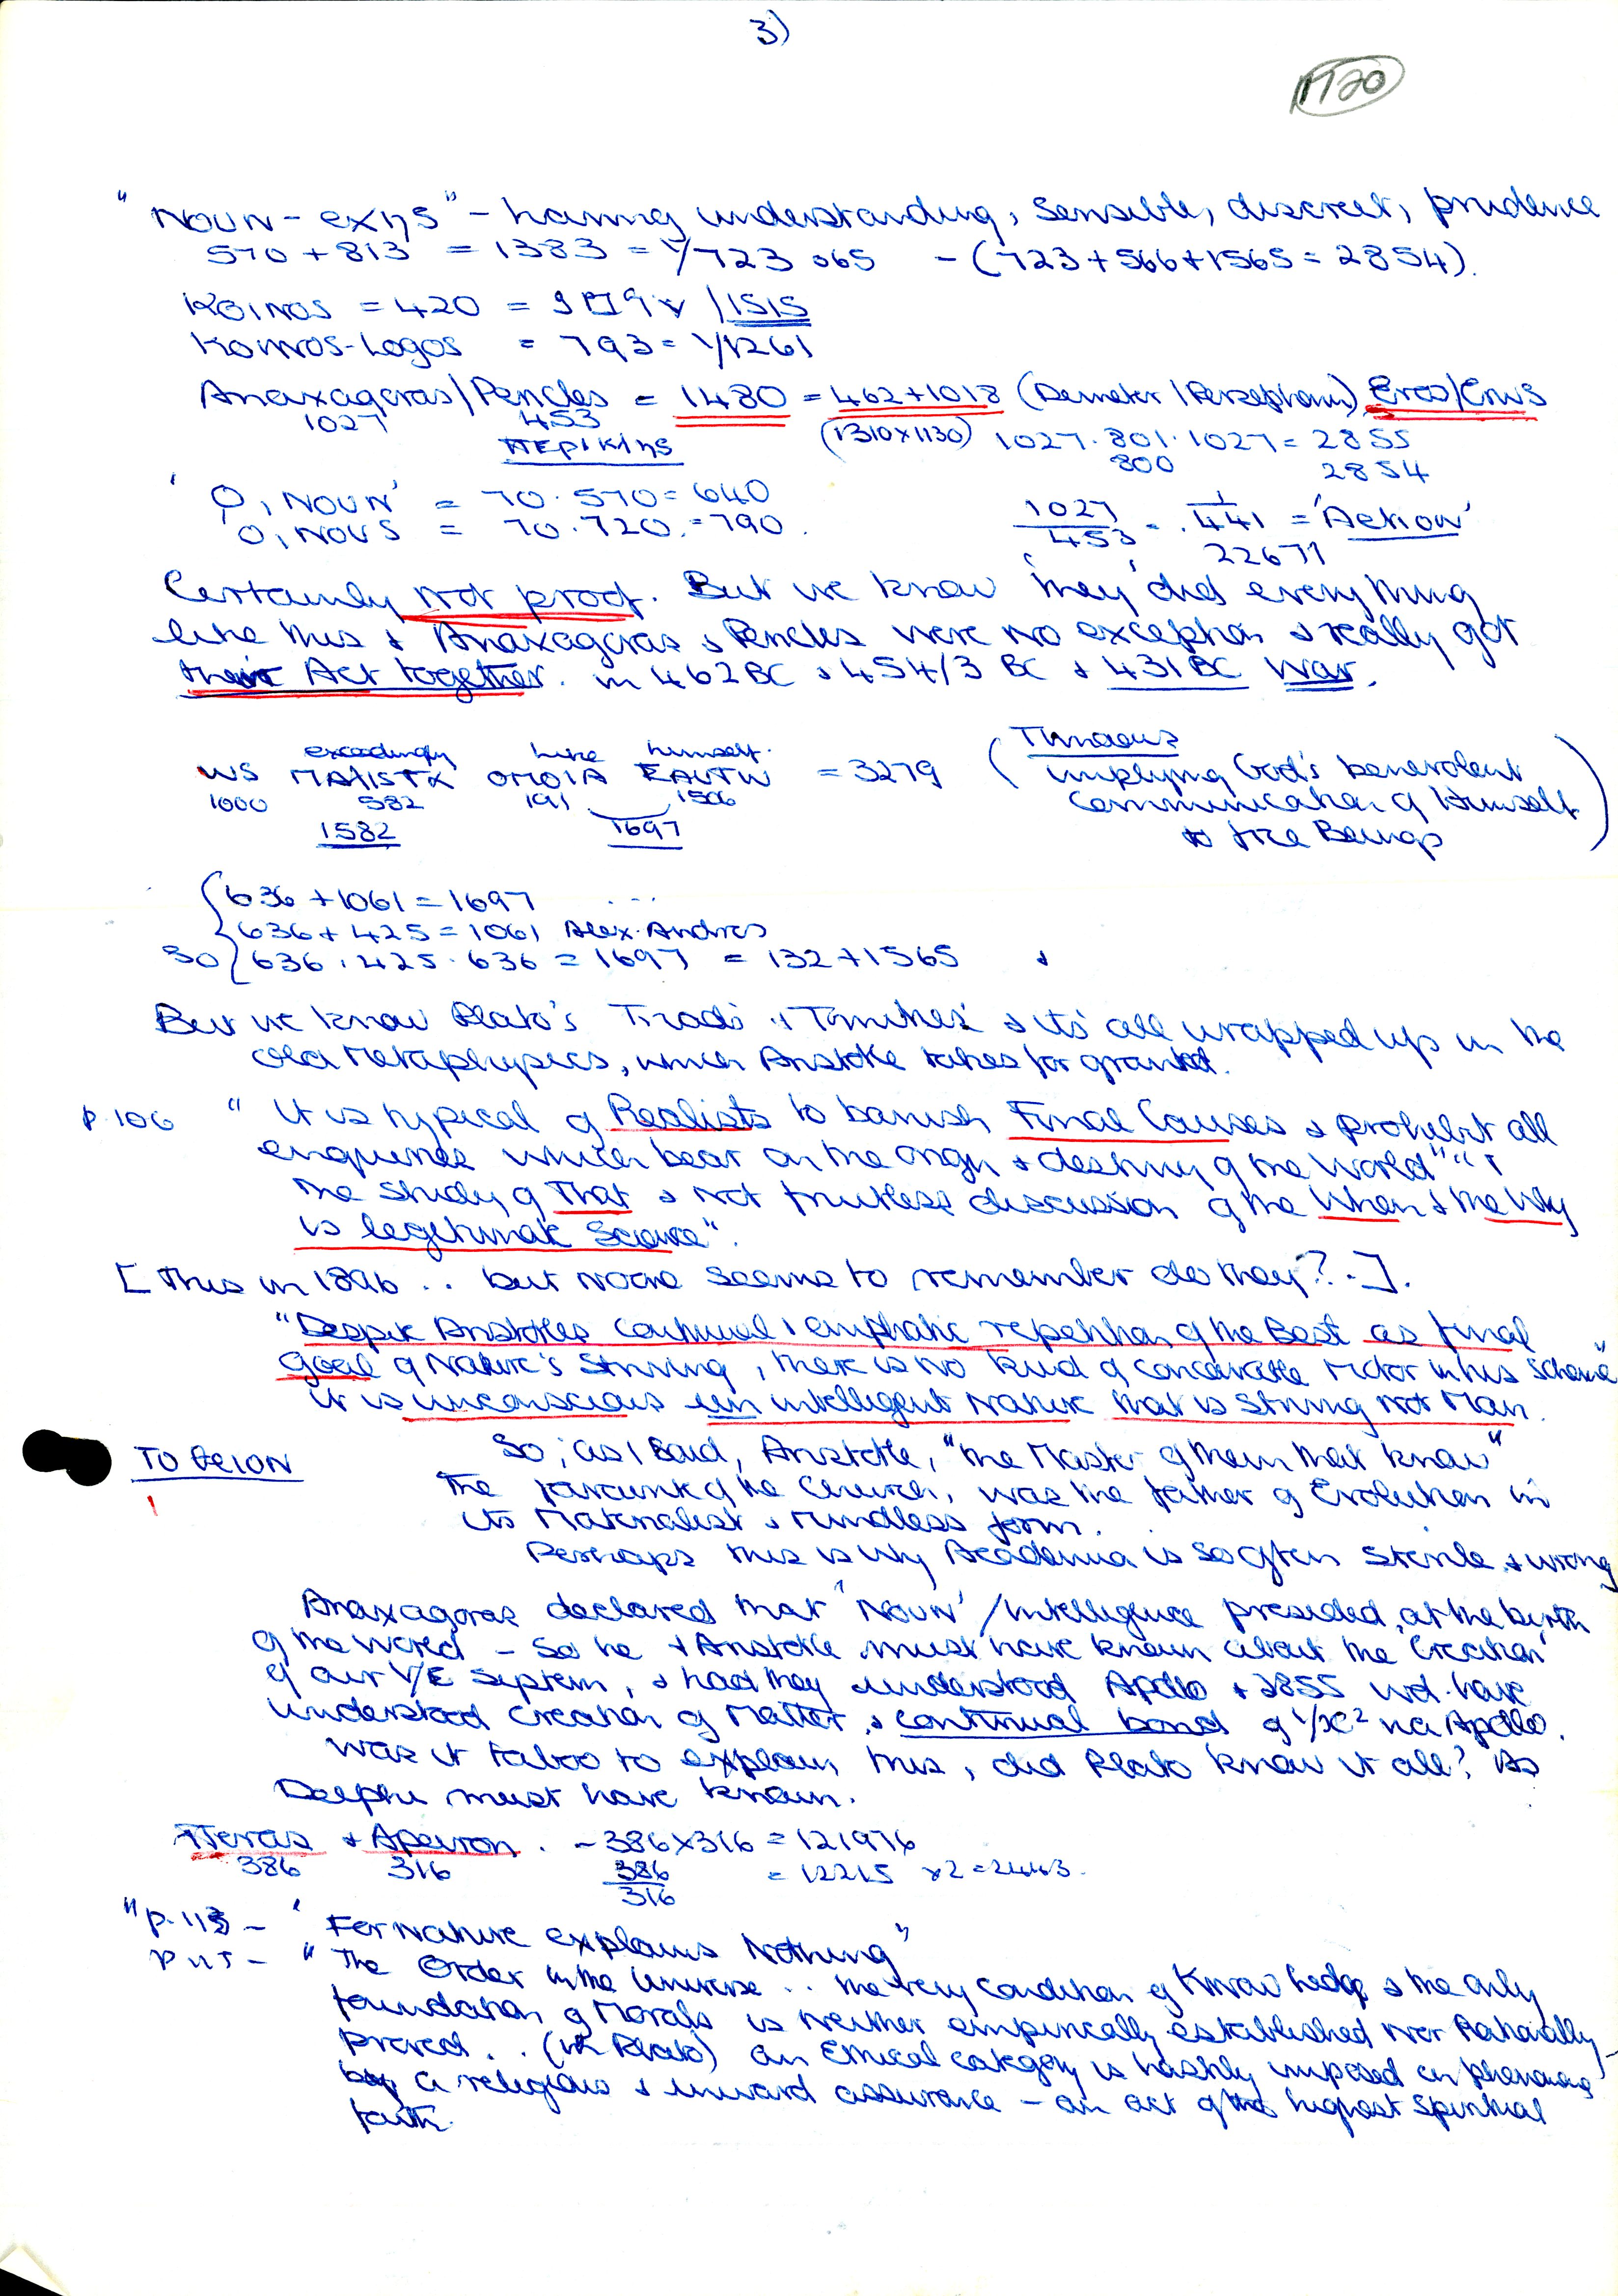 3)
1720
"Noun-exηs" - having understanding, sensible, discreet, prudence
570 + 813 = 1383 = 1/723.065 - (723+566+1565 = 2854).
Koinos = 420 = /ISIS
Koinos-Logos = 793 = 1/1261
Anaxagoras/Pericles = 1480 = 462+1018 (Demeter/Persephone) Eros/Erws
1027 453 (1310x1130) 1027. 801. 1027 = 2855
περιkληs 800 2854
'O, NOUN' = 70. 570 = 640
'O, NOUS = 70. 720. = 790.
1027/453 = 1/.441 = 'Action'
22671
Certainly not proof. But we know 'they' did everything
like this & Anaxagoras & Pericles were no exception & really got
their Act together. in 462 BC & 454/3 BC & 431 BC War.
exceedingly like himself.
WS MAλISTA OMOIA EAUTW = 3279 (Timaeus
1000 582 191 1506 implying God's benevolent
1582 1697 Communication of Himself
to free Beings)
636 + 1061 = 1697 ...
636 + 425 = 1061 Alex. Andros
So 636. 425. 636 = 1697 = 132 + 1565 &
But we know Plato's Triads & 'Trinities' & its all wrapped up in the
old Metaphysics, which Aristotle takes for granted.
p. 106 "It is typical of Realists to banish Final Causes & prohibit all
enquiries which bear on the origin & destiny of the World" "
the study of That & not fruitless discussion of the When & the Why
is legitimate Science".
[This in 1896 .. but noone seems to remember do they? .].
"Despite Aristotles continual & emphatic repetition of the Best as final
goal of Nature's Striving, there is no kind of conceivable Motor in his scheme"
it is unconscious unintelligent Nature that is striving not Man.
TO θEION So, as I said, Aristotle, "the Master of them that know"
the favourite of the Church, was the father of Evolution in
its Materialist & Mindless form.
Perhaps this is why Academia is so often Sterile & wrong
Anaxagoras declared that 'Noun'/Intelligence presided at the birth
of the World - So he & Aristotle must have known about the 'Creation'
of our V/E System, & had they understood Apollo & 2855 wd. have
understood creation of Matter & continual bond of 1/x² via Apollo.
Was it taboo to explain this, did Plato know it all? As
Delphi must have known.
πeras & Apeiron. - 386 x 316 = 121976
386 316 386/316 = 1.2215 x2 = 2.443.
"p. 113 - 'For Nature explains Nothing"
p 115 - "The Order in the Universe .. the very condition of Knowledge & the only
foundation of Morals is neither empirically established nor Rationally
proved .. (in Plato) an Ethical category is hastily imposed on phenomena
by a religious & inward assurance - an act of the highest spiritual
faith.